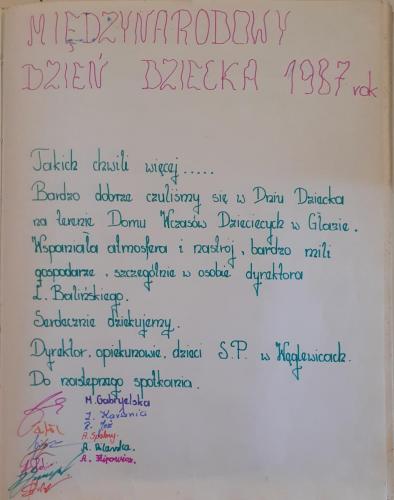 MIĘDZYNARODOWY
DZIEŃ DZIECKA 1987 rok
Takich chwili więcej.....
Bardzo dobrze czuliśmy się w Dniu Dziecka
na terenie Domu Wczasów Dziecięcych w Głazie.
Wspaniała atmosfera i nastrój, bardzo mili
gospodarze, szczególnie w osobie dyrektora
Z. Balińskiego.
Serdecznie dziękujemy.
Dyrektor, opiekunowie, dzieci S.P. w Węglewicach.
Do następnego spotkania.
M. Gabryelska
J. Karania
R. Jeż
A. Spalony
A. Pilarska
A. Filipowicz